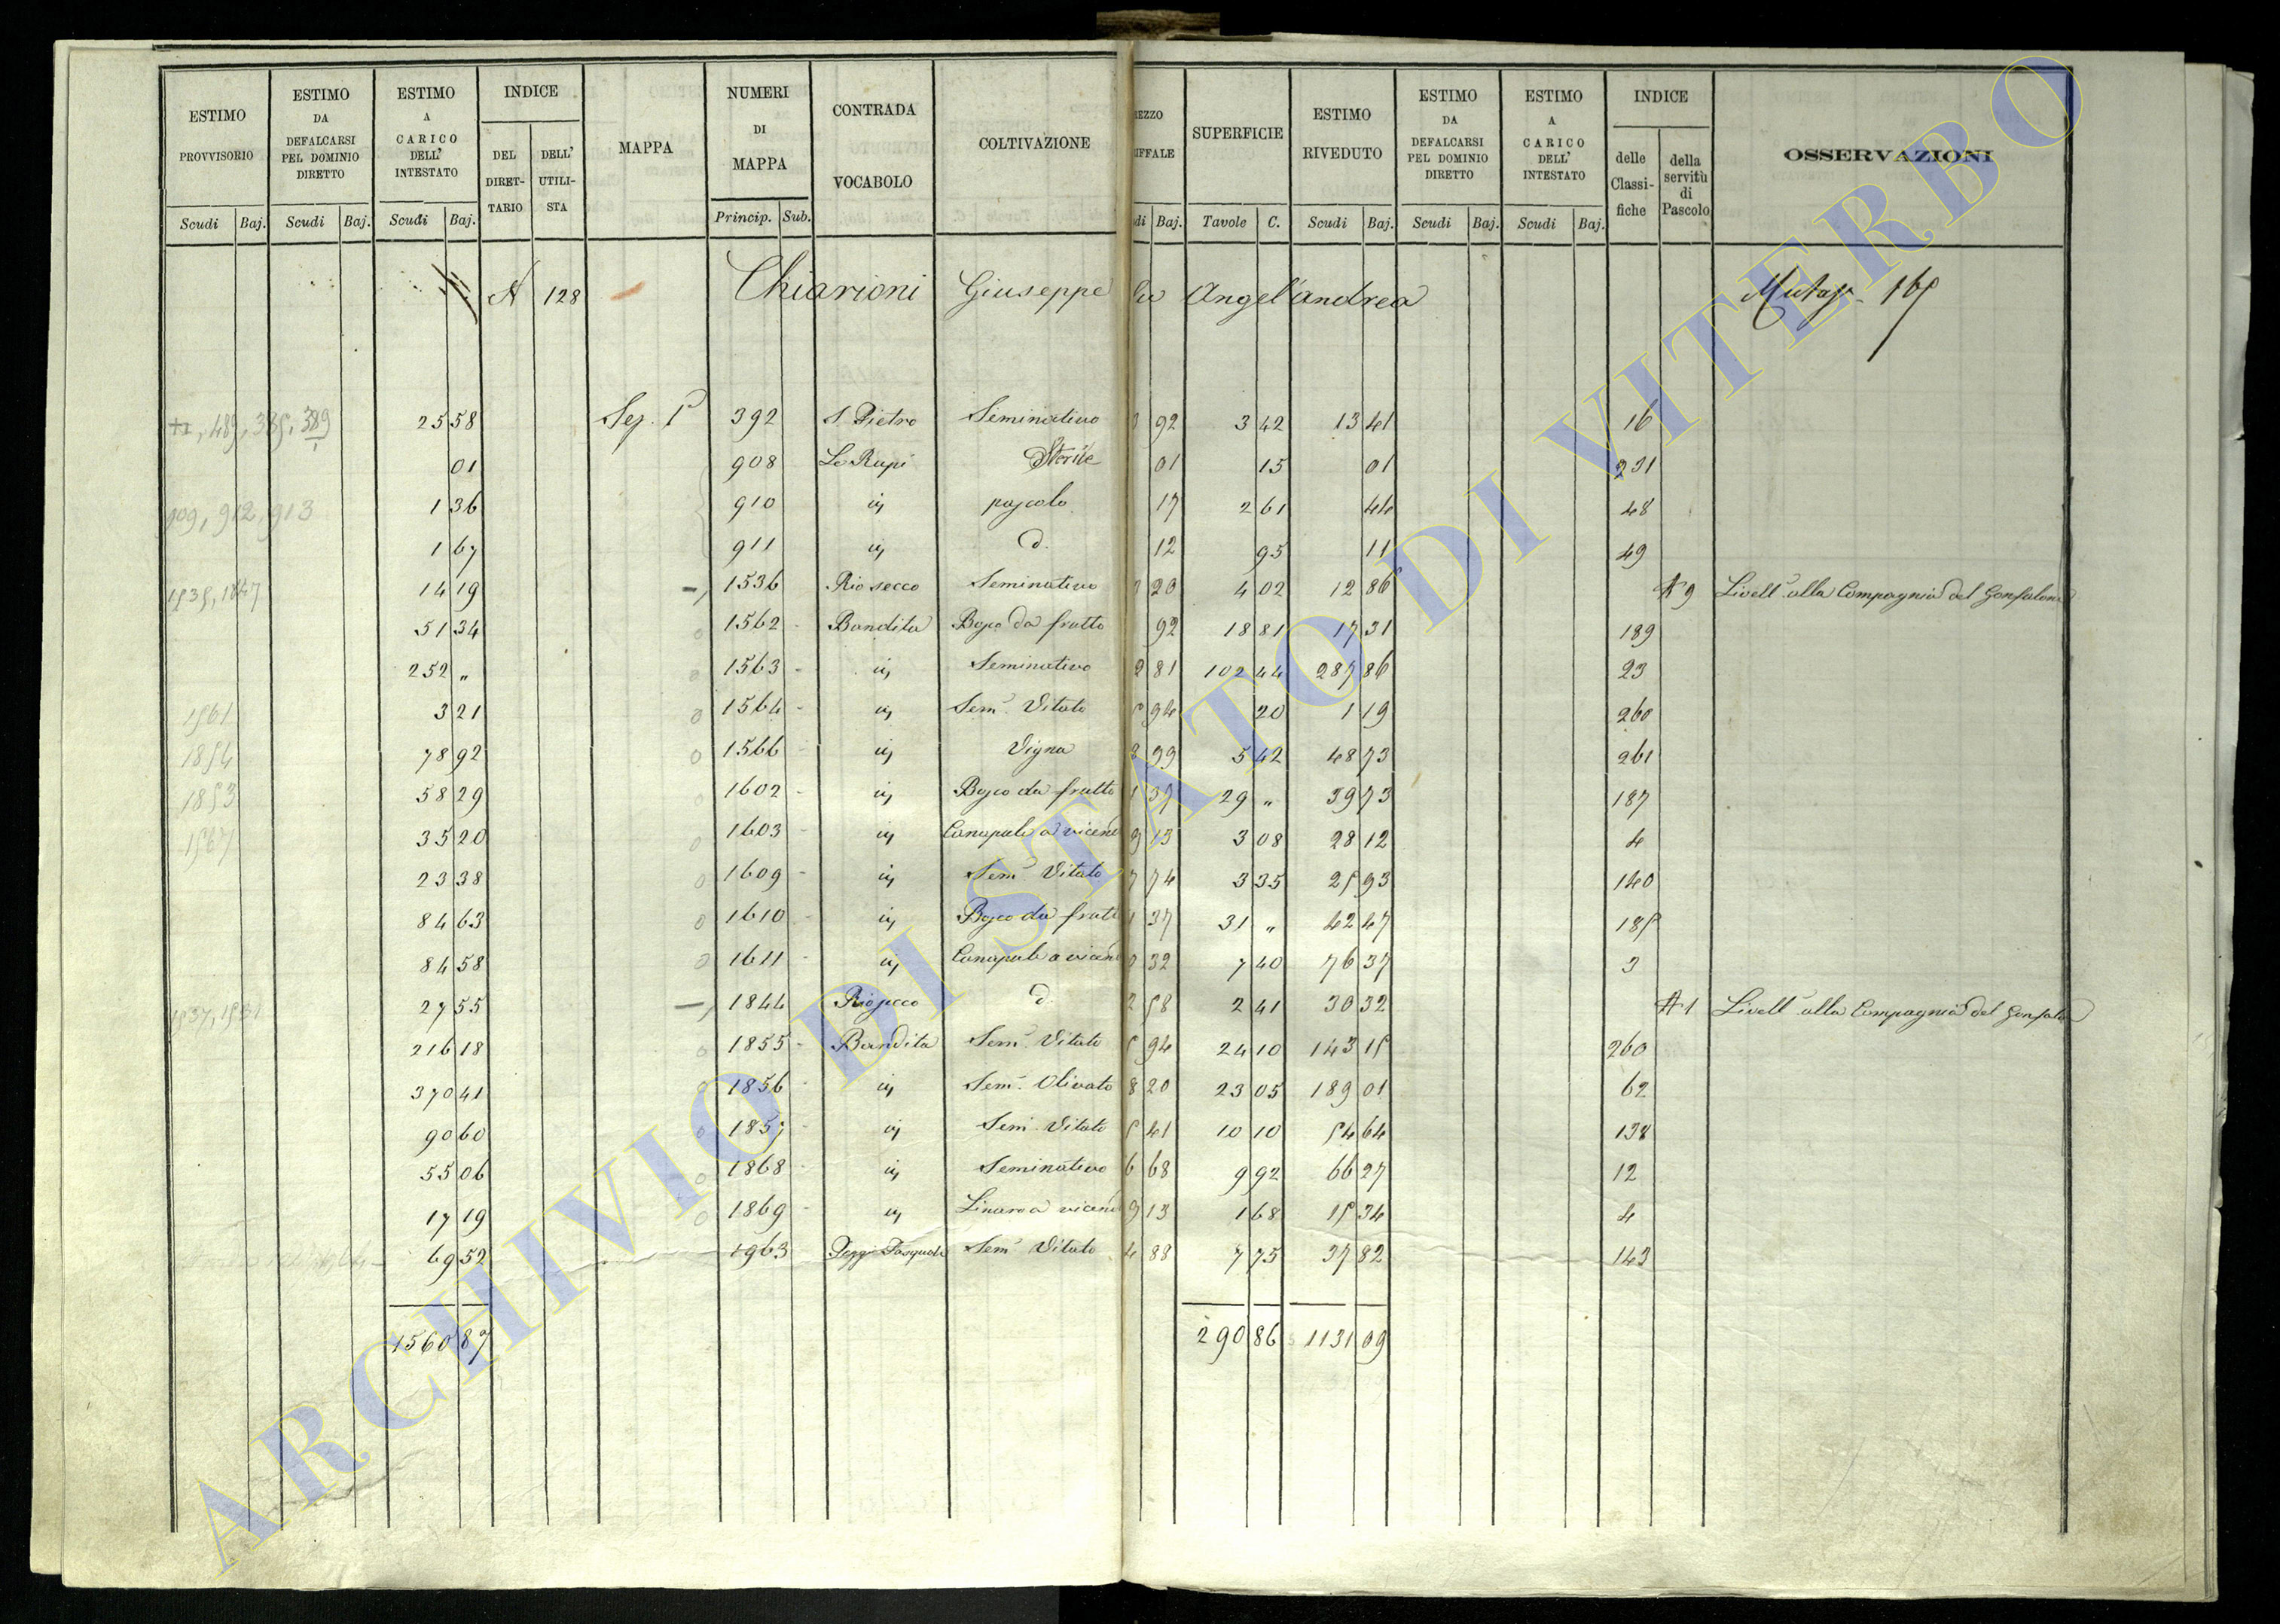 ESTIMO PROVVISORIO | ESTIMO DA DEFALCARSI PEL DOMINIO DIRETTO | ESTIMO A CARICO DELL' INTESTATO | INDICE | MAPPA | NUMERI DI MAPPA | CONTRADA VOCABOLO | COLTIVAZIONE | SUPERFICIE | ESTIMO RIVEDUTO | ESTIMO DA DEFALCARSI PEL DOMINIO DIRETTO | ESTIMO A CARICO DELL' INTESTATO | INDICE | OSSERVAZIONI
DEL DIRETTARIO | DELL' UTILISTA | delle Classifiche | della servitù di Pascolo
Scudi | Baj. | Scudi | Baj. | Scudi | Baj. | Princip. | Sub. | Baj. | Tavole | C. | Scudi | Baj. | Scudi | Baj. | Scudi | Baj.
128 Chiarioni Giuseppe Angel'andrea
25 58 | Sez. 1ª | 392 | S. Pietro | Seminativo | 92 | 3 42 | 13 41 | 16
01 | 908 | Le Rupi | Sterile | 01 | 15 | 01 | 231
909, 912, 913 | 1 36 | 910 | iij | pascolo | 17 | 2 61 | 44 | 48
1 67 | 911 | iij | d. | 12 | 95 | 11 | 49
14 19 | 1536 | Rio secco | Seminativo | 20 | 4 02 | 12 86 | 9 | Livell.º alla Compagnia del Gonfalone
51 34 | 1562 | Bandita | Bosco da frutto | 92 | 18 81 | 17 31 | 189
252 „ | 1563 | iij | Seminativo | 2 81 | 102 44 | 287 86 | 23
1561 | 3 21 | 1564 | iij | Sem.º Vitato | 5 94 | 20 | 1 19 | 260
1854 | 78 92 | 1566 | iij | Vigna | 8 99 | 5 42 | 48 73 | 261
1853 | 58 29 | 1602 | iij | Bosco da frutto | 1 37 | 29 „ | 39 73 | 187
1567 | 35 20 | 1603 | iij | Canapule a vicend | 9 13 | 3 08 | 28 12 | 4
23 38 | 1609 | iij | Sem.º Vitato | 7 74 | 3 35 | 25 93 | 140
84 63 | 1610 | iij | Bosco da frutt | 1 37 | 31 „ | 42 47 | 185
84 58 | 1611 | iij | Canapule a vicend | 32 | 7 40 | 76 37 | 3
27 55 | 1844 | Riosecco | d. | 2 58 | 2 41 | 30 32 | 1 | Livell.º alla Compagnia del Gonfalo
216 18 | 1855 | Bandita | Sem.º Vitato | 5 94 | 24 10 | 143 15 | 260
370 41 | 1856 | iij | Sem.º Olivato | 8 20 | 23 05 | 189 01 | 62
90 60 | 1857 | iij | Sem. Vitato | 5 41 | 10 10 | 54 64 | 138
55 06 | 1868 | iij | Seminativo | 6 68 | 9 92 | 66 27 | 12
17 19 | 1869 | iij | Linaro a vicend | 9 13 | 1 68 | 15 34 | 4
69 52 | 1963 | Pasquale | Sem.º Vitato | 4 88 | 7 75 | 37 82 | 143
1560 87 | 290 86 | 1131 09
ARCHIVIO DI STATO DI VITERBO